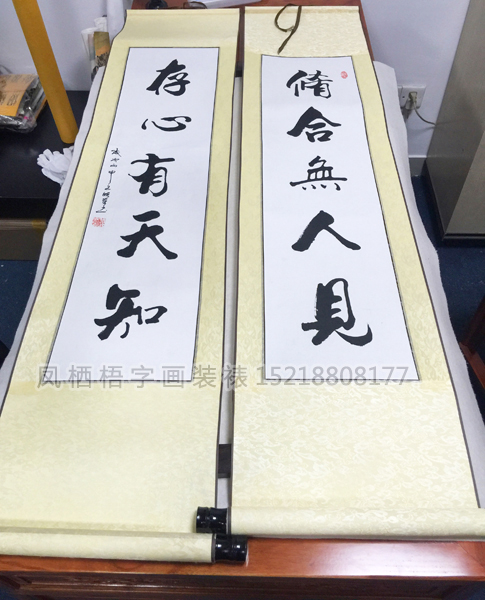 脩合無人見
存心有天知
凤栖梧字画装裱 15218808177